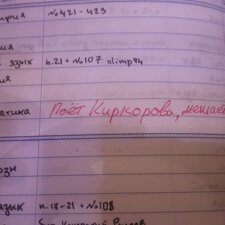 трия №421-423
ия
язык п.21 + №107 olimp74
ия
атика Поёт Киркорова, мешает
язык п.17-21 + №108